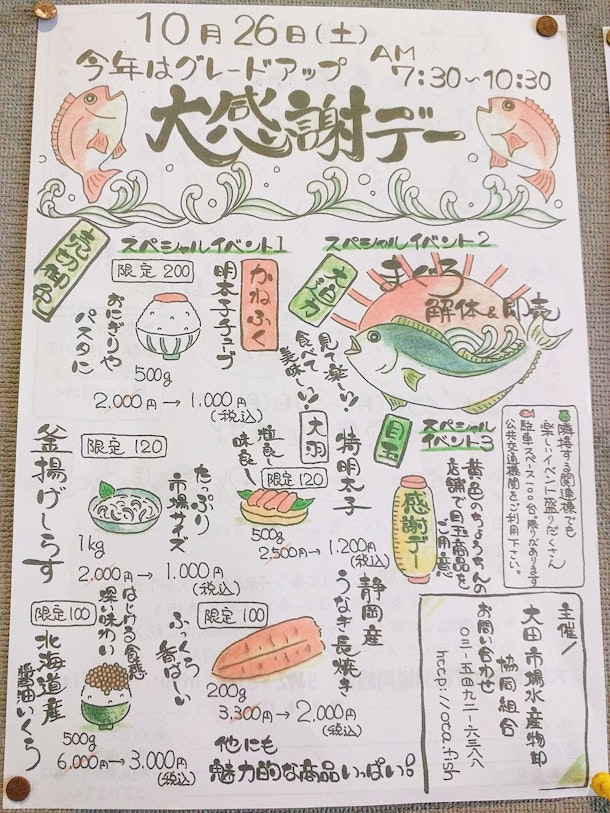 10月26日(土)
今年はグレードアップ
AM
7:30~10:30
大感謝デー
スペシャルイベント1
売切御免
限定200
かねふく
明太子チューブ
おにぎりや
パスタに
500g
2,000円→1,000円
(税込)
スペシャルイベント2
大迫力
まぐろ
解体&即売
見て楽しい!
食べて
美味しい!
限定120
釜揚げしらす
たっぷり
市場サイズ
1kg
2,000円→1,000円
(税込)
大羽
特明太子
粒良し
味良し
限定120
500g
2,500円→1,200円
(税込)
目玉
スペシャル
イベント3
感謝デー
黄色のちょうちんの
店舗で目玉商品を
ご用意
隣接する関連棟でも
楽しいイベント盛りだくさん
駐車スペース100台。限りがあります
公共交通機関をご利用下さい。
限定100
はじける食感
深い味わい
北海道産
醤油いくら
500g
6,000円→3,000円
(税込)
限定100
静岡産
うなぎ長焼き
ふっくら
香ばしい
200g
3,300円→2,000円
(税込)
他にも
魅力的な商品いっぱい!
主催/
大田市場水産物卸
協同組合
お問い合わせ
03-5492-6388
http://ota.fish